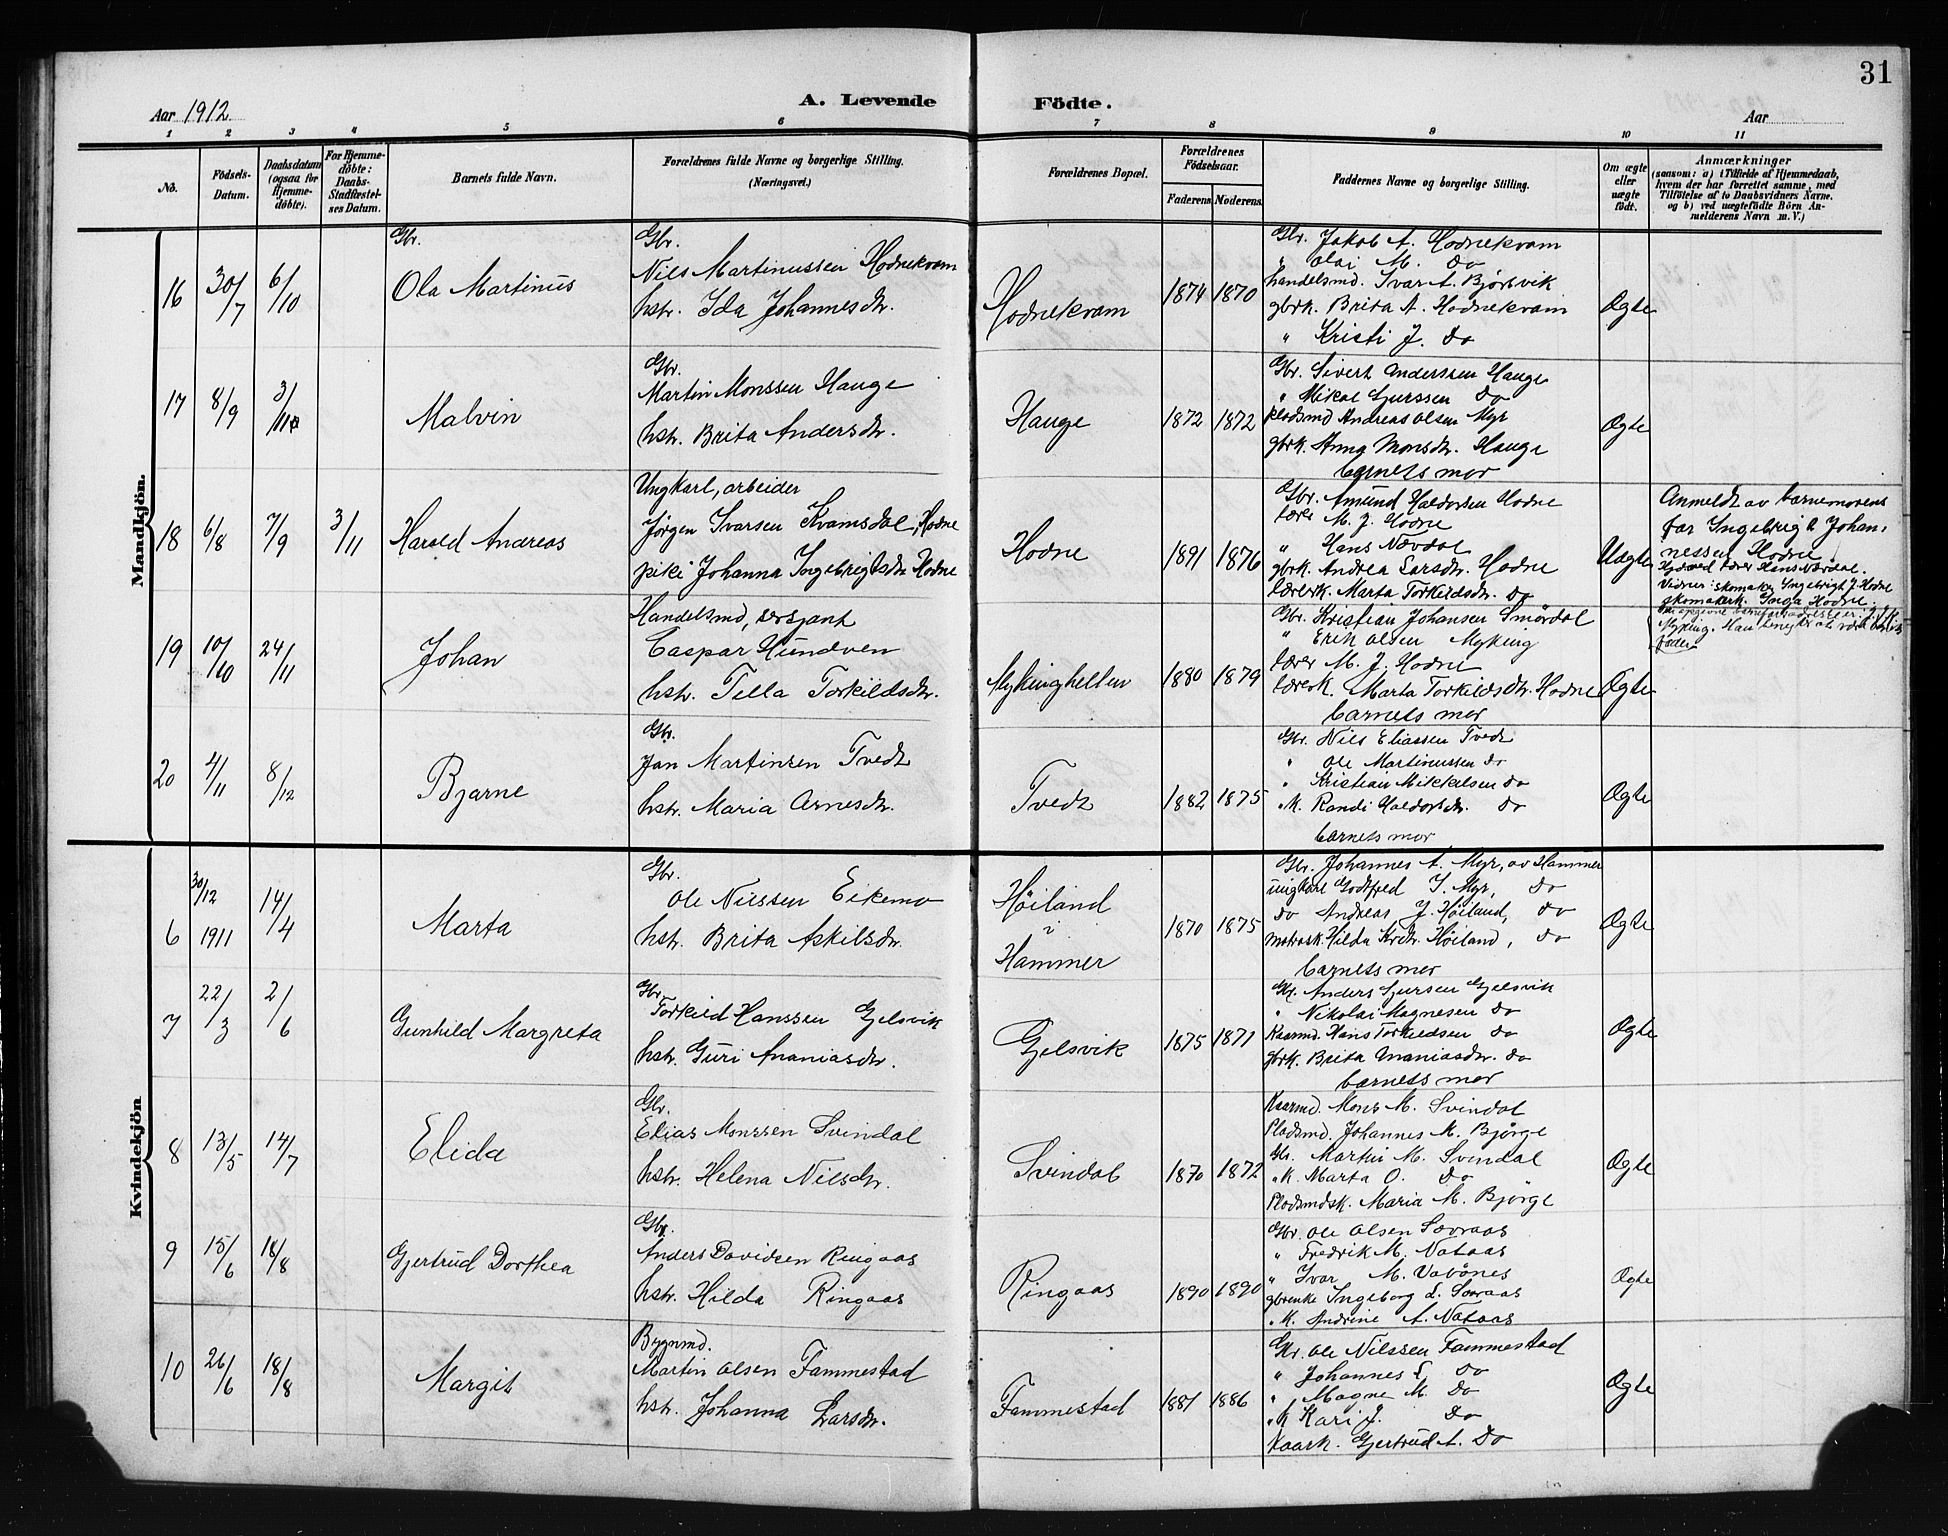 31
Aar 1912
A. Levende Födte.
Aar
1 2 3 4 5 6 7 8 9 10 11
No.
Födsels-Datum.
Daabsdatum (ogsaa for Hjemme-döbte).
For Hjemme-döbte: Daabs-Stadfæstel-ses Datum.
Barnets fulde Navn.
Forældrenes fulde Navne og borgerlige Stilling. (Næringsvei.)
Forældrenes Bopæl.
Forældrenes Födselsaar.
Faderens Moderens
Faddernes Navne og borgerlige Stilling.
Om ægte eller uægte födt.
Anmærkninger
(saasom: a) i Tilfælde af Hjemmedaab,
hvem der har forrettet samme, med
Tilföielse af to Daabsvidners Navne.
og b) ved uægtefödte Börn An-
melderens Navn m. V.)
Mandkjön.
16 30/7 6/10
Gbr.
Ola Martinus
Gbr.
Nils Martinussen Hodnekvam
hstr. Ida Johannesdtr.
Hodnekvam
1874 1870
Gbr. Jakob A. Hodnekvam
" Olai M. do
handelsmd. Ivar A. Bjørsvik
gbrk. Brita A. Hodnekvam
" Kristi J. do
Ægte
17 8/9 3/11
Malvin
Gbr.
Martin Monssen Hauge
hstr. Brita Andersdtr.
Hauge
1872 1872
Gbr. Sivert Anderssen Hauge
" Mikal Sjurssen do
pladsmd Andreas Olsen Myr
gbrk. Anna Monsdtr. Hauge
barnets mor
Ægte
18 6/8 7/9 3/11
Harald Andreas
Ungkarl, arbeider
Jørgen Ivarsen Kvamsdal, Hodne
pike Johanna Ingebrigtsdtr Hodne
Hodne
1891 1876
Gbr. Amund Haldorsen Hodne
lærer M. J. Hodne
" Hans Nævdal
gbrk. Andrea Larsdtr. Hodne
lærerk. Marta Torkildsdtr. do
Uægte
Anmeldt av barnemorens
far Ingebrigt Johan-
nessen Hodne
Hjdøbt lærer Hans Nævdal.
Vidner: skomaker Ingebrigt J. Hodne
skomakerk. Inga Hodne.
19 10/10 24/11
Johan
Handelsmd, sersjant
Caspar Hundven
hstr. Tella Torkildsdtr.
Mykinghelten
1880 1879
Gbr. Kristian Johansen Smørdal
" Erik Olsen Myking
lærer M. J. Hodne
lærerk. Marta Torkildsdtr. Hodne
barnets mor
Ægte
20 4/11 8/12
Bjarne
Gbr.
Jan Martinsen Tvedt
hstr. Maria Arnesdtr.
Tvedt
1882 1875
Gbr. Nils Eliassen Tvedt
" Ole Martinussen do
" Kristian Mikkelsen do
" k. Randi Haldorsdtr. do
barnets mor
Ægte
Kvindekjön
6 30/12 1911 14/4
Marta
Gbr.
Ole Nilssen Eikemo
hstr. Brita Askilsdtr.
Høiland
i
Hammer
1870 1875
Gbr. Johannes A. Myr, av Hammer
ungkarl Godtfred J. Myr, do
do Andreas J. Høiland, do
matrosk. Hilda Kr.dtr. Høiland, do
barnets mor
Ægte
7 22/3 2/6
Gunhild Margreta
Gbr.
Torkild Hanssen Gjelsvik
hstr. Guri Ananiasdtr.
Gjelsvik
1875 1871
Gbr. Anders Sjursen Gjelsvik
" Nikolai Magnesen do
Kaarmd. Hans Torkildsen do
gbrk. Brita Ananiasdtr. do
barnets mor
Ægte
8 13/5 14/7
Elida
Gbr.
Elias Monssen Svindal
hstr. Helena Nilsdtr.
Svindal
1870 1872
Kaarmd. Mons M. Svindal
Pladsmd. Johannes M. Bjørge
Gbr. Martin M. Svindal
" k. Marta O. do
Pladsmdsk. Maria M. Bjørge
Ægte
9 15/6 18/8
Gjertrud Dorthea
Gbr.
Anders Davidsen Ringaas
hstr. Hilda Ringaas
Ringaas
1890 1890
Gbr. Ole Olsen Sævraas
" Fredrik M. Nataas
" Ivar M. Vabönes
gbrenke Ingeborg L. Sævraas
" k. Andrine A. Nataas
Ægte
10 26/6 18/8
Margit
Bygnmd.
Martin Olsen Fammestad
hstr. Johanna Larsdtr.
Fammestad
1881 1886
Gbr. Ole Nilssen Fammestad
" Johannes L. do
" Magne M. do
" k Kari J. do
Kaark. Gjertrud A. do
Ægte